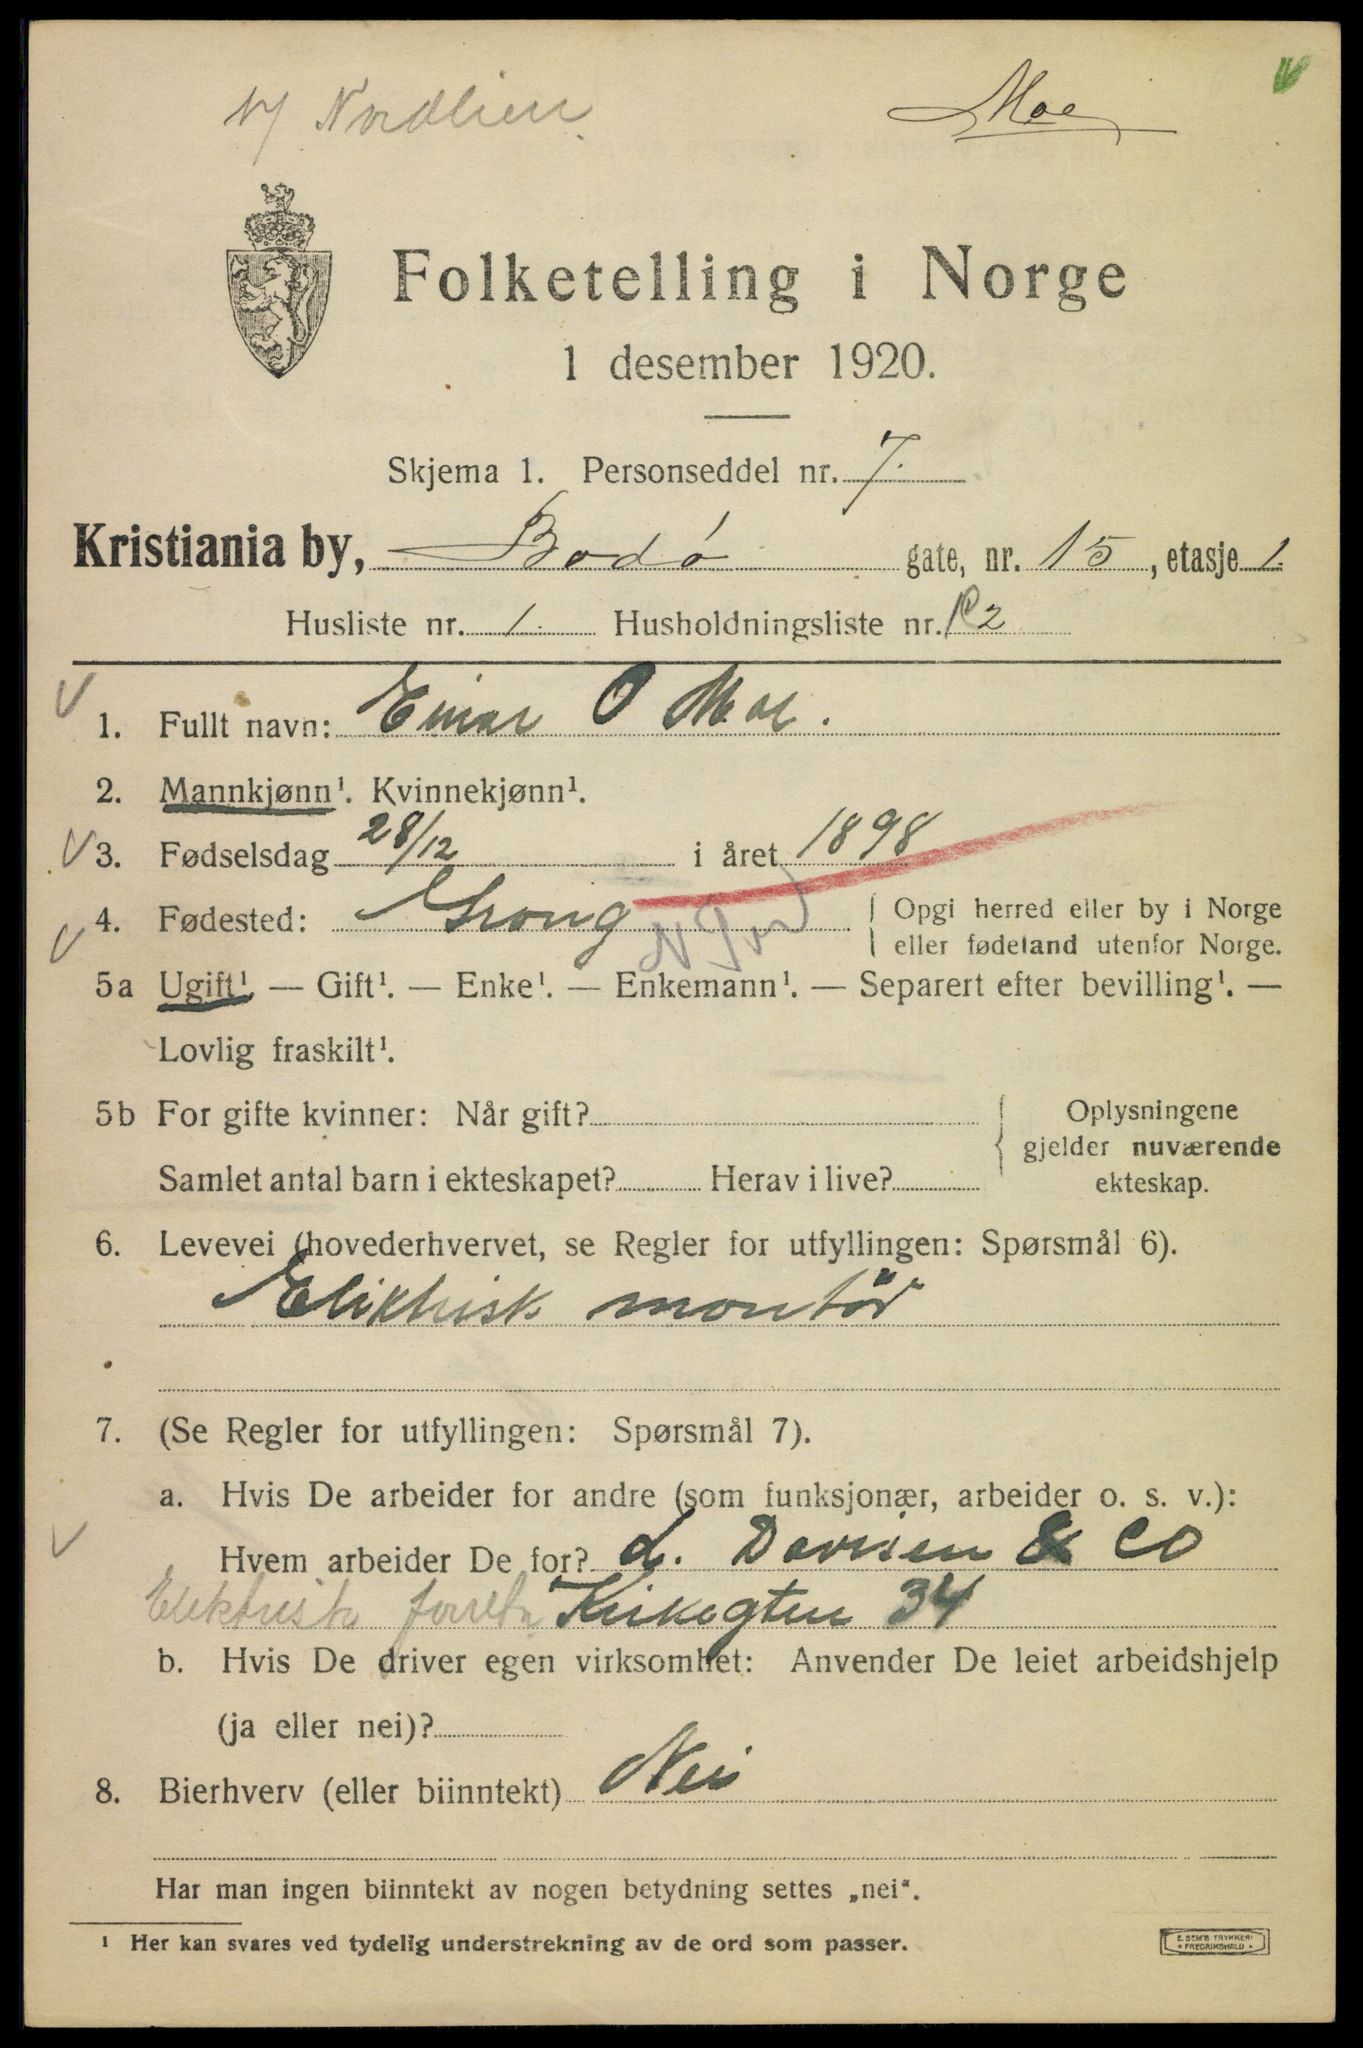 v/ Nordlien
Moe
Folketelling i Norge
1 desember 1920.
Skjema 1. Personseddel nr. 7.
Kristiania by, Bodø gate, nr. 15, etasje 1.
Husliste nr. 1. Husholdningsliste nr. 2
1. Fullt navn: Einar O Moe.
2. Mannkjønn¹. Kvinnekjønn¹.
3. Fødselsdag 28/12 i året 1898
4. Fødested: Grong { Opgi herred eller by i Norge
eller fødeland utenfor Norge.
5a Ugift¹. — Gift¹. — Enke¹. — Enkemann¹. — Separert efter bevilling¹. —
Lovlig fraskilt¹.
5b For gifte kvinner: Når gift? { Oplysningene
gjelder nuværende
Samlet antal barn i ekteskapet? Herav i live? ekteskap.
6. Levevei (hovederhvervet, se Regler for utfyllingen: Spørsmål 6).
Elektrisk montör
7. (Se Regler for utfyllingen: Spørsmål 7).
a. Hvis De arbeider for andre (som funksjonær, arbeider o. s. v.):
Hvem arbeider De for? L. Davisen & CO
Elektrisk forretn Kirkegten 34
b. Hvis De driver egen virksomhet: Anvender De leiet arbeidshjelp
(ja eller nei)?
8. Bierhverv (eller biinntekt) Nei
Har man ingen biinntekt av nogen betydning settes „nei“.
¹ Her kan svares ved tydelig understrekning av de ord som passer.
E. SEM'S TRYKKERI
• FREDRIKSHALD •